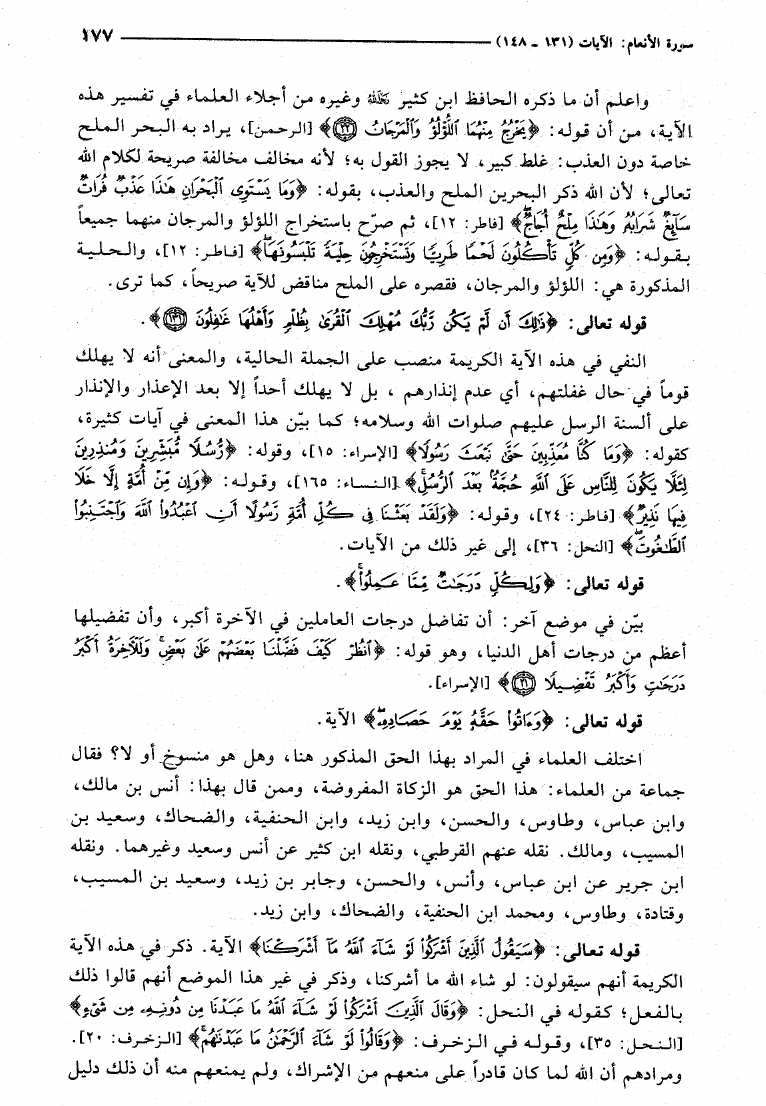 سورة الأنعام: الآيات (١٣١ - ١٤٨) ١٧٧
واعلم أن ما ذكره الحافظ ابن كثير رحمه الله وغيره من أجلاء العلماء في تفسير هذه
الآية، من أن قوله: ﴿يَخْرُجُ مِنْهُمَا ٱللُّؤْلُؤُ وَٱلْمَرْجَانُ ﴿٢٢﴾﴾ [الرحمن]، يراد به البحر الملح
خاصة دون العذب: غلط كبير، لا يجوز القول به؛ لأنه مخالف مخالفة صريحة لكلام الله
تعالى؛ لأن الله ذكر البحرين الملح والعذب، بقوله: ﴿وَمَا يَسْتَوِى ٱلْبَحْرَانِ هَٰذَا عَذْبٌ فُرَاتٌ
سَآئِغٌ شَرَابُهُۥ وَهَٰذَا مِلْحٌ أُجَاجٌ﴾ [فاطر: ١٢]، ثم صرّح باستخراج اللؤلؤ والمرجان منهما جميعاً
بقوله: ﴿وَمِن كُلٍّ تَأْكُلُونَ لَحْمًا طَرِيًّا وَتَسْتَخْرِجُونَ حِلْيَةً تَلْبَسُونَهَا﴾ [فاطر: ١٢]، والحلية
المذكورة هي: اللؤلؤ والمرجان، فقصره على الملح مناقض للآية صريحاً، كما ترى.
قوله تعالى: ﴿ذَٰلِكَ أَن لَّمْ يَكُن رَّبُّكَ مُهْلِكَ ٱلْقُرَىٰ بِظُلْمٍ وَأَهْلُهَا غَٰفِلُونَ ﴿١٣١﴾﴾.
النفي في هذه الآية الكريمة منصب على الجملة الحالية، والمعنى أنه لا يهلك
قوماً في حال غفلتهم، أي عدم إنذارهم ، بل لا يهلك أحداً إلا بعد الإعذار والإنذار
على ألسنة الرسل عليهم صلوات الله وسلامه؛ كما بيّن هذا المعنى في آيات كثيرة،
كقوله: ﴿وَمَا كُنَّا مُعَذِّبِينَ حَتَّىٰ نَبْعَثَ رَسُولًا﴾ [الإسراء: ١٥]، وقوله: ﴿رُّسُلًا مُّبَشِّرِينَ وَمُنذِرِينَ
لِئَلَّا يَكُونَ لِلنَّاسِ عَلَى ٱللَّهِ حُجَّةٌۢ بَعْدَ ٱلرُّسُلِ﴾ [النساء: ١٦٥]، وقوله: ﴿وَإِن مِّنْ أُمَّةٍ إِلَّا خَلَا
فِيهَا نَذِيرٌ﴾ [فاطر: ٢٤]، وقوله: ﴿وَلَقَدْ بَعَثْنَا فِى كُلِّ أُمَّةٍ رَّسُولًا أَنِ ٱعْبُدُوا۟ ٱللَّهَ وَٱجْتَنِبُوا۟
ٱلطَّٰغُوتَ﴾ [النحل: ٣٦]، إلى غير ذلك من الآيات.
قوله تعالى: ﴿وَلِكُلٍّ دَرَجَٰتٌ مِّمَّا عَمِلُوا۟﴾.
بيّن في موضع آخر: أن تفاضل درجات العاملين في الآخرة أكبر، وأن تفضيلها
أعظم من درجات أهل الدنيا، وهو قوله: ﴿ٱنظُرْ كَيْفَ فَضَّلْنَا بَعْضَهُمْ عَلَىٰ بَعْضٍ وَلَلْءَاخِرَةُ أَكْبَرُ
دَرَجَٰتٍ وَأَكْبَرُ تَفْضِيلًا ﴿٢١﴾﴾ [الإسراء].
قوله تعالى: ﴿وَءَاتُوا۟ حَقَّهُۥ يَوْمَ حَصَادِهِۦ﴾ الآية.
اختلف العلماء في المراد بهذا الحق المذكور هنا، وهل هو منسوخ أو لا؟ فقال
جماعة من العلماء: هذا الحق هو الزكاة المفروضة، وممن قال بهذا: أنس بن مالك،
وابن عباس، وطاوس، والحسن، وابن زيد، وابن الحنفية، والضحاك، وسعيد بن
المسيب، ومالك. نقله عنهم القرطبي، ونقله ابن كثير عن أنس وسعيد وغيرهما. ونقله
ابن جرير عن ابن عباس، وأنس، والحسن، وجابر بن زيد، وسعيد بن المسيب،
وقتادة، وطاوس، ومحمد ابن الحنفية، والضحاك، وابن زيد.
قوله تعالى: ﴿سَيَقُولُ ٱلَّذِينَ أَشْرَكُوا۟ لَوْ شَآءَ ٱللَّهُ مَآ أَشْرَكْنَا﴾ الآية. ذكر في هذه الآية
الكريمة أنهم سيقولون: لو شاء الله ما أشركنا، وذكر في غير هذا الموضع أنهم قالوا ذلك
بالفعل؛ كقوله في النحل: ﴿وَقَالَ ٱلَّذِينَ أَشْرَكُوا۟ لَوْ شَآءَ ٱللَّهُ مَا عَبَدْنَا مِن دُونِهِۦ مِن شَىْءٍ﴾
[النحل: ٣٥]، وقوله في الزخرف: ﴿وَقَالُوا۟ لَوْ شَآءَ ٱلرَّحْمَٰنُ مَا عَبَدْنَٰهُم﴾ [الزخرف: ٢٠].
ومرادهم أن الله لما كان قادراً على منعهم من الإشراك، ولم يمنعهم منه أن ذلك دليل